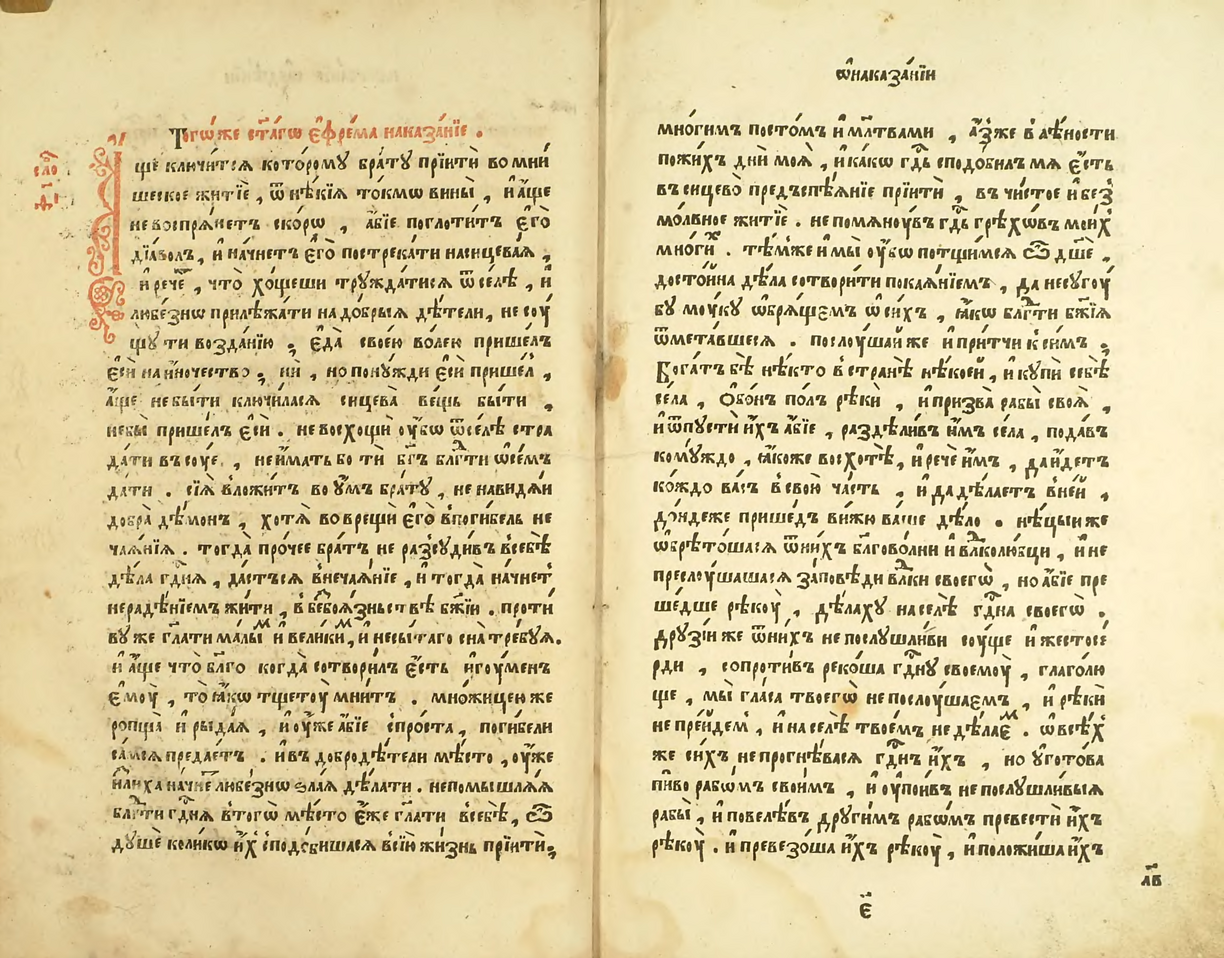 Тогѡ́же ст҃а́гѡ є҆фре́ма наказа́нїе .
сло́
а҆́ще ключи́тсѧ кото́рому бра́ту прїитѝ во мни́
шеское житїѐ , ѿ нѣ́кїѧ то́кмѡ вины̀ , и҆ а҆́ще
не воспрѧ́нетъ ско́рѡ , а҆́бїе поглоти́тъ є҆го̀
дїа́волъ , и҆ начне́тъ є҆го̀ построка́ти на сицева́ѧ ,
и҆ рече́ , что̀ хо́щеши тружда́тисѧ ѿ селѣ̀ , и҆
любе́знѡ прилѣжа́ти на до́брыѧ дѣ́тели , не соу́
щу ти возда́нїю ; є҆да̀ своею̀ во́лею прише́лъ
є҆сѝ на и҆́ночество ; нѝ , но по ну́жди є҆сѝ прише́л ,
а҆́ще не бы́ти ключи́лаѧ сицева̀ ве́щь бы́ти ,
не бы̀ прише́лъ є҆сѝ . не восхощѝ ᲂу҆́бѡ ѿселѣ̀ стра
да́ти въ соуе , не и҆́мать бо тѝ бг҃ъ бл҃гти ѡ҆ се́мъ
да́ти . сїѧ̑ вложи́тъ во ᲂу҆́мъ бра́ту , не нави́дѧи
добра̀ де́монъ , хотѧ̀ воврещѝ є҆го̀ в поги́бель не
ча́ѧнїѧ . тогда̀ про́чее бра́тъ не разсуди́въ в себѣ̀
дѣла̀ гд҃нѧ , да́стъсѧ в неча́ѧнїе , и҆ тогда̀ начне́т
нераде́нїемъ жи́ти , в безбоѧ́знествѣ бж҃їи . проти́
ву же гл҃ати ма́лым и҆ вели́ким , и҆ несы́таго сна̀ тре́буѧ .
и҆ а҆́ще что̀ бл҃го когда̀ сотвори́лъ є҆́сть и҆гоу́менъ
є҆моу̀ , то̀ ꙗ҆́кѡ тщетоу̀ мни́тъ . мно́жицею же
ропща̀ и҆ рыда́ѧ , и҆ ᲂу҆́же а҆́бїе спро́ста , поги́бели
са́мсѧ предае́тъ . и҆ въ добродѣ́тели мѣ́сто , ᲂу҆́же
и҆ ли́ха начне́т любе́знѡ ѕла́ѧ дѣ́лати . не помышлѧ́ѧ
бл҃гти гд҃нѧ в то́гѡ мѣ́сто є҆́же гл҃ати в себѣ̀ , ѽ
душѐ коли́кѡ и҆́х сподо́бишасѧ в сїю̀ жи́знь прїитѝ ,
ѡ҆ наказа́нїи
мно́гимъ посто́мъ и҆ мл҃твами , а҆́зже в лѣ́ности
пожи́хъ днѝ моѧ̀ , и҆ ка́кѡ гд҃ь сподо́билъ мѧ є҆́сть
въ сицево̀ предъспѣ́ѧнїе прїитѝ , въ чи́стое и҆ без̾
мо́лвное житїѐ . не помѧноу́въ гд҃ь грѣхѡ́въ мои́х
мно́гих . тѣ́мже и҆ мы̀ ᲂу҆́бѡ потщи́мсѧ ѽ дш҃ѐ ,
досто́йна дѣла̀ сотвори́ти покаѧ́нїемъ , да не соугоу́
бу мо́уку ѡ҆брѧ́щемъ ѡ҆ си́хъ , ꙗ҆́кѡ бл҃гти бж҃їѧ
ѿмета́вшесѧ . послоу́шай же и҆ при́тчи к си́мъ .
Бога́тъ бѣ̀ нѣ́кто в странѣ̀ нѣ́коей , и҆ купѝ себѣ̀
се́ла , ѻ҆бо́нъ по́лъ рѣкѝ , и҆ призва̀ рабы̀ своѧ̀ ,
и҆ ѿпустѝ и҆́хъ а҆́бїе , раздели́въ и҆́мъ се́ла , пода́въ
кому́ждо , ꙗ҆́коже восхотѣ̀ , и҆ речѐ и҆́мъ , да и҆́детъ
ко́ждо ва́съ в свою̀ ча́сть , и҆ да дѣ́лаетъ в не́й ,
до́ндеже прише́дъ ви́жю ва́ше дѣ́ло . нѣ́цыи же
ѡ҆брѣто́шасѧ ѿ ни́хъ бл҃гово́лни и҆ вл҃колю́бцы , и҆ не
преслоу́шашасѧ за́повѣди влⷣки своегѡ̀ , но а҆́бїе пре
ше́дше рѣкоу̀ , дѣ́лаху на селѣ̀ гд҃на своегѡ̀ .
друзі́и же ѿ ни́хъ не послушли́ви соу́ще и҆ жестосе
рди , сопроти́въ реко́ша гд҃ну своемоу̀ , глаго́лю
ще , мы̀ гла́са твоегѡ̀ не послоу́шаемъ , и҆ рѣкѝ
не пре́йдем , и҆ на селѣ̀ твое́мъ не дѣ́лаем . ѡ҆ всѣ́х
же си́хъ не прогнѣ́васѧ гд҃нъ и҆́хъ , но ᲂу҆гото́ва
пи́во рабѡ́мъ свои́мъ , и҆ ᲂу҆пои́въ не послушли́выѧ
рабы̀ , и҆ повелѣ́въ други́мъ рабѡ́мъ превестѝ и҆́хъ
рѣкоу̀ . и҆ превезо́ша и҆́хъ рѣкоу̀ , и҆ положи́ша и҆́хъ
лв҃
є҃